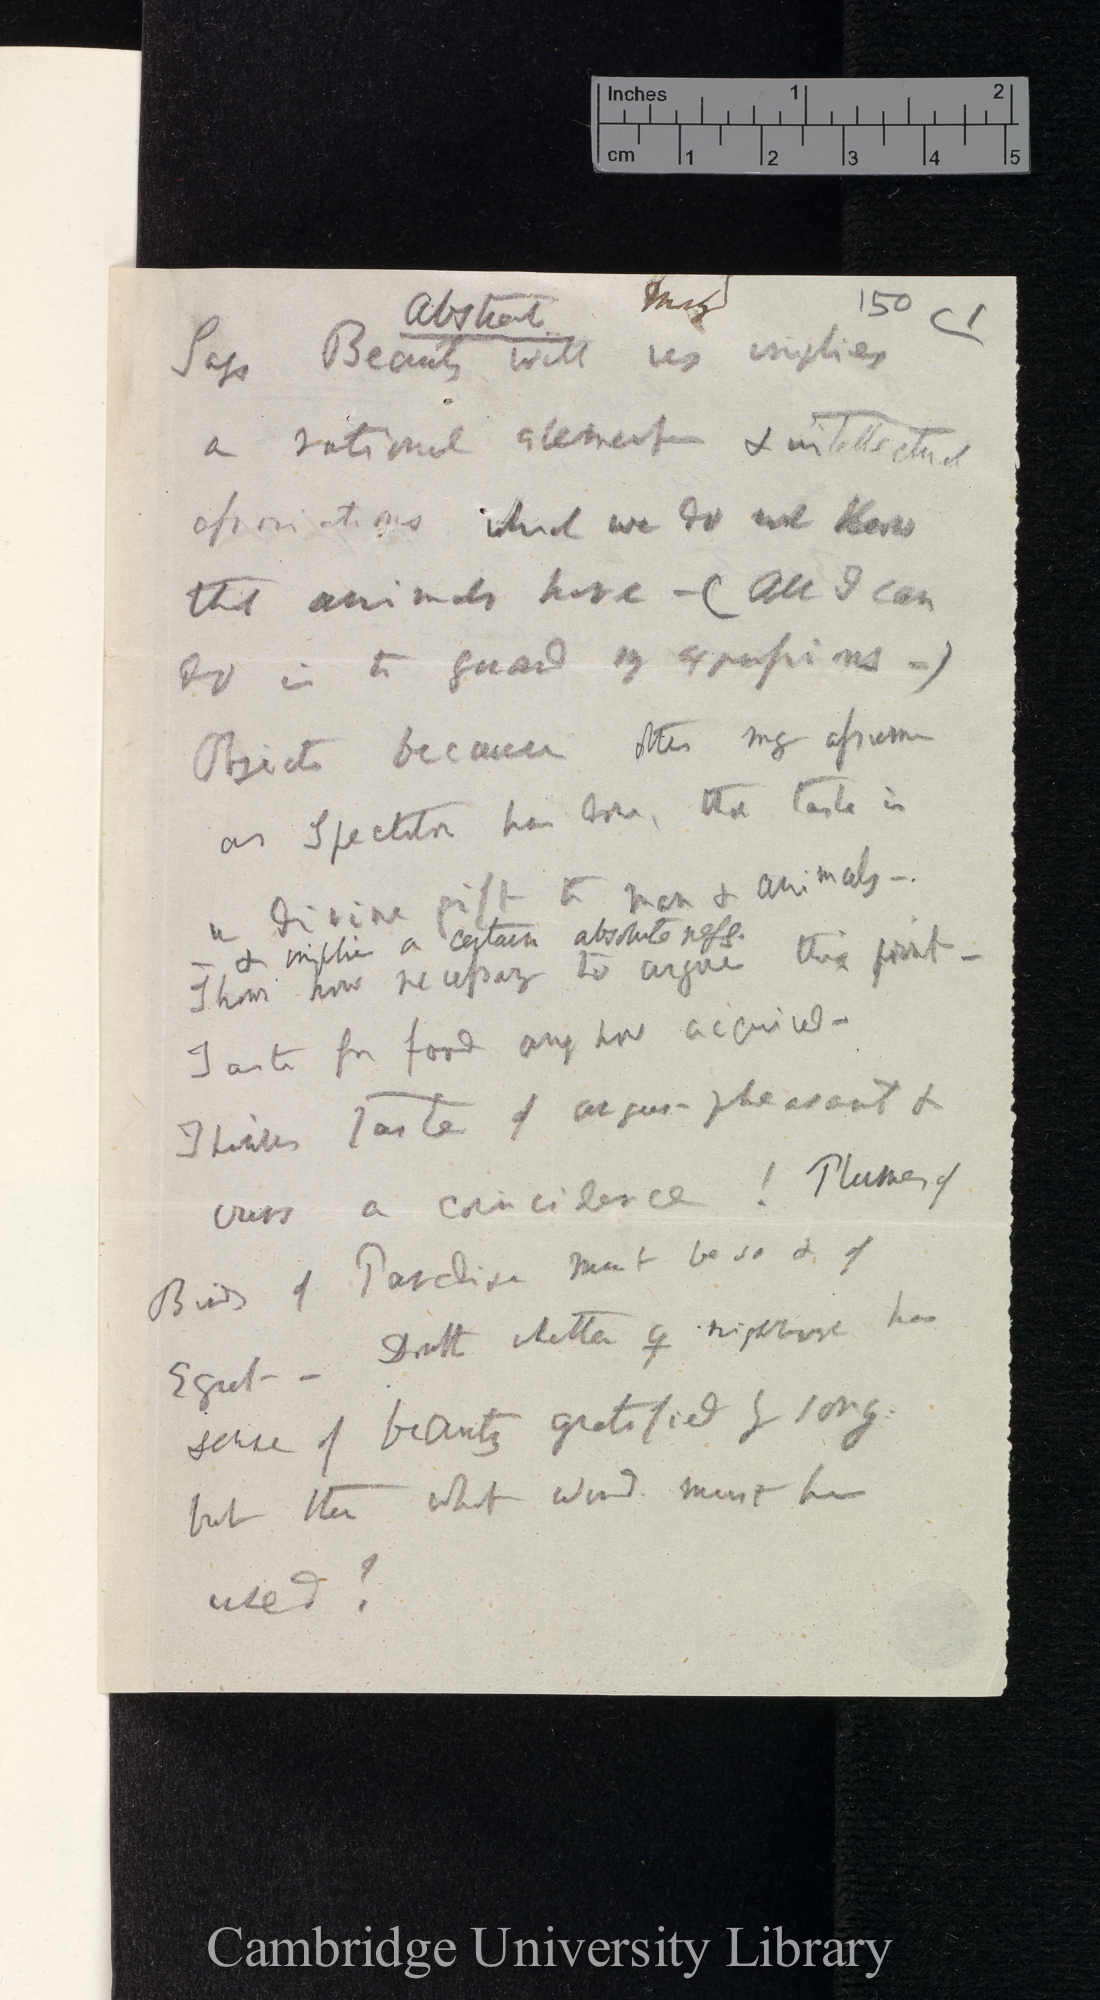 Inches 1 2
cm 1 2 3 4 5
Abstract
150
Says Beauty with us implies
a rational element & intellectual
associations which we do not know
that animals have – ( All I can
do is to guard my expressions –)
Objects because others may assume
as Spectator has done, that taste is
a divine gift to man & animals –.
– & implies a certain absoluteness.
Shows how necessary to argue this point –
Taste for food any how acquired –
Thinks Taste of argus-pheasant &
ours a coincidence ! Plumes of
Birds of Paradise must be so & of
Egret – – Doubts whether ♀ nightingale has
sense of beauty gratified by song:
but then what word must be
used?
Cambridge University Library